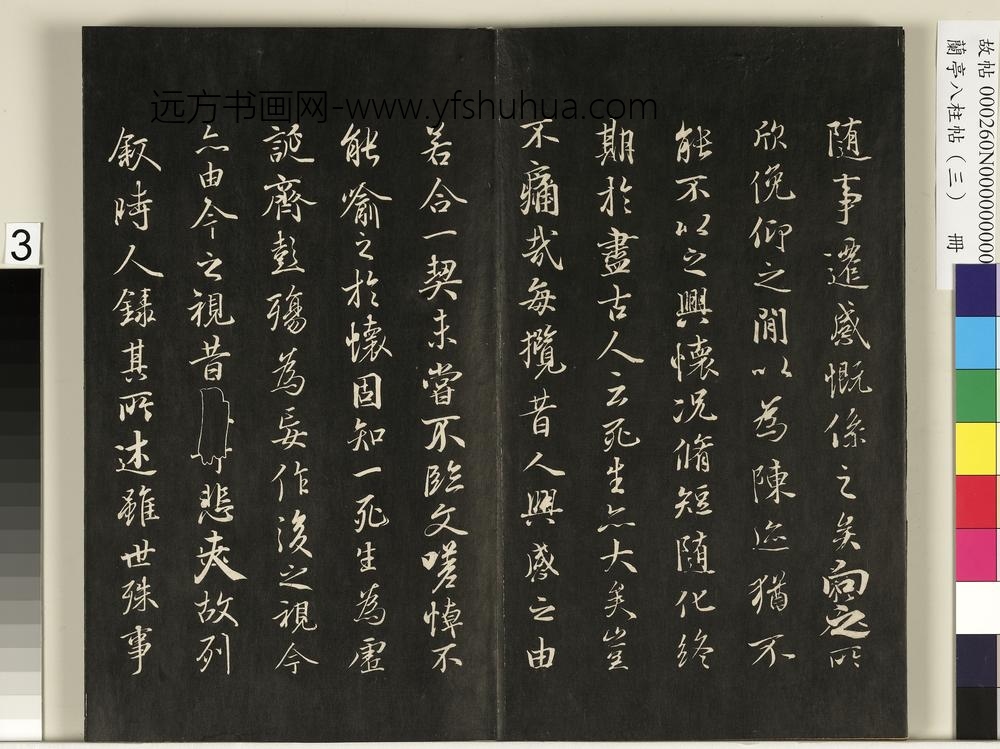 随事遷感慨係之矣向之所
欣俛仰之間以為陳迹猶不
能不以之興懷况脩短随化終
期於盡古人云死生亦大矣豈
不痛哉每攬昔人興感之由
若合一契未嘗不臨文嗟悼不
能喻之於懷固知一死生為虛
誕齊彭殤為妄作後之視今
亦由今之視昔悲夫故列
敘時人錄其所述雖世殊事
远方书画网-www.yfshuhua.com
故帖 000260N000000000
蘭亭八柱帖（三） 冊
3